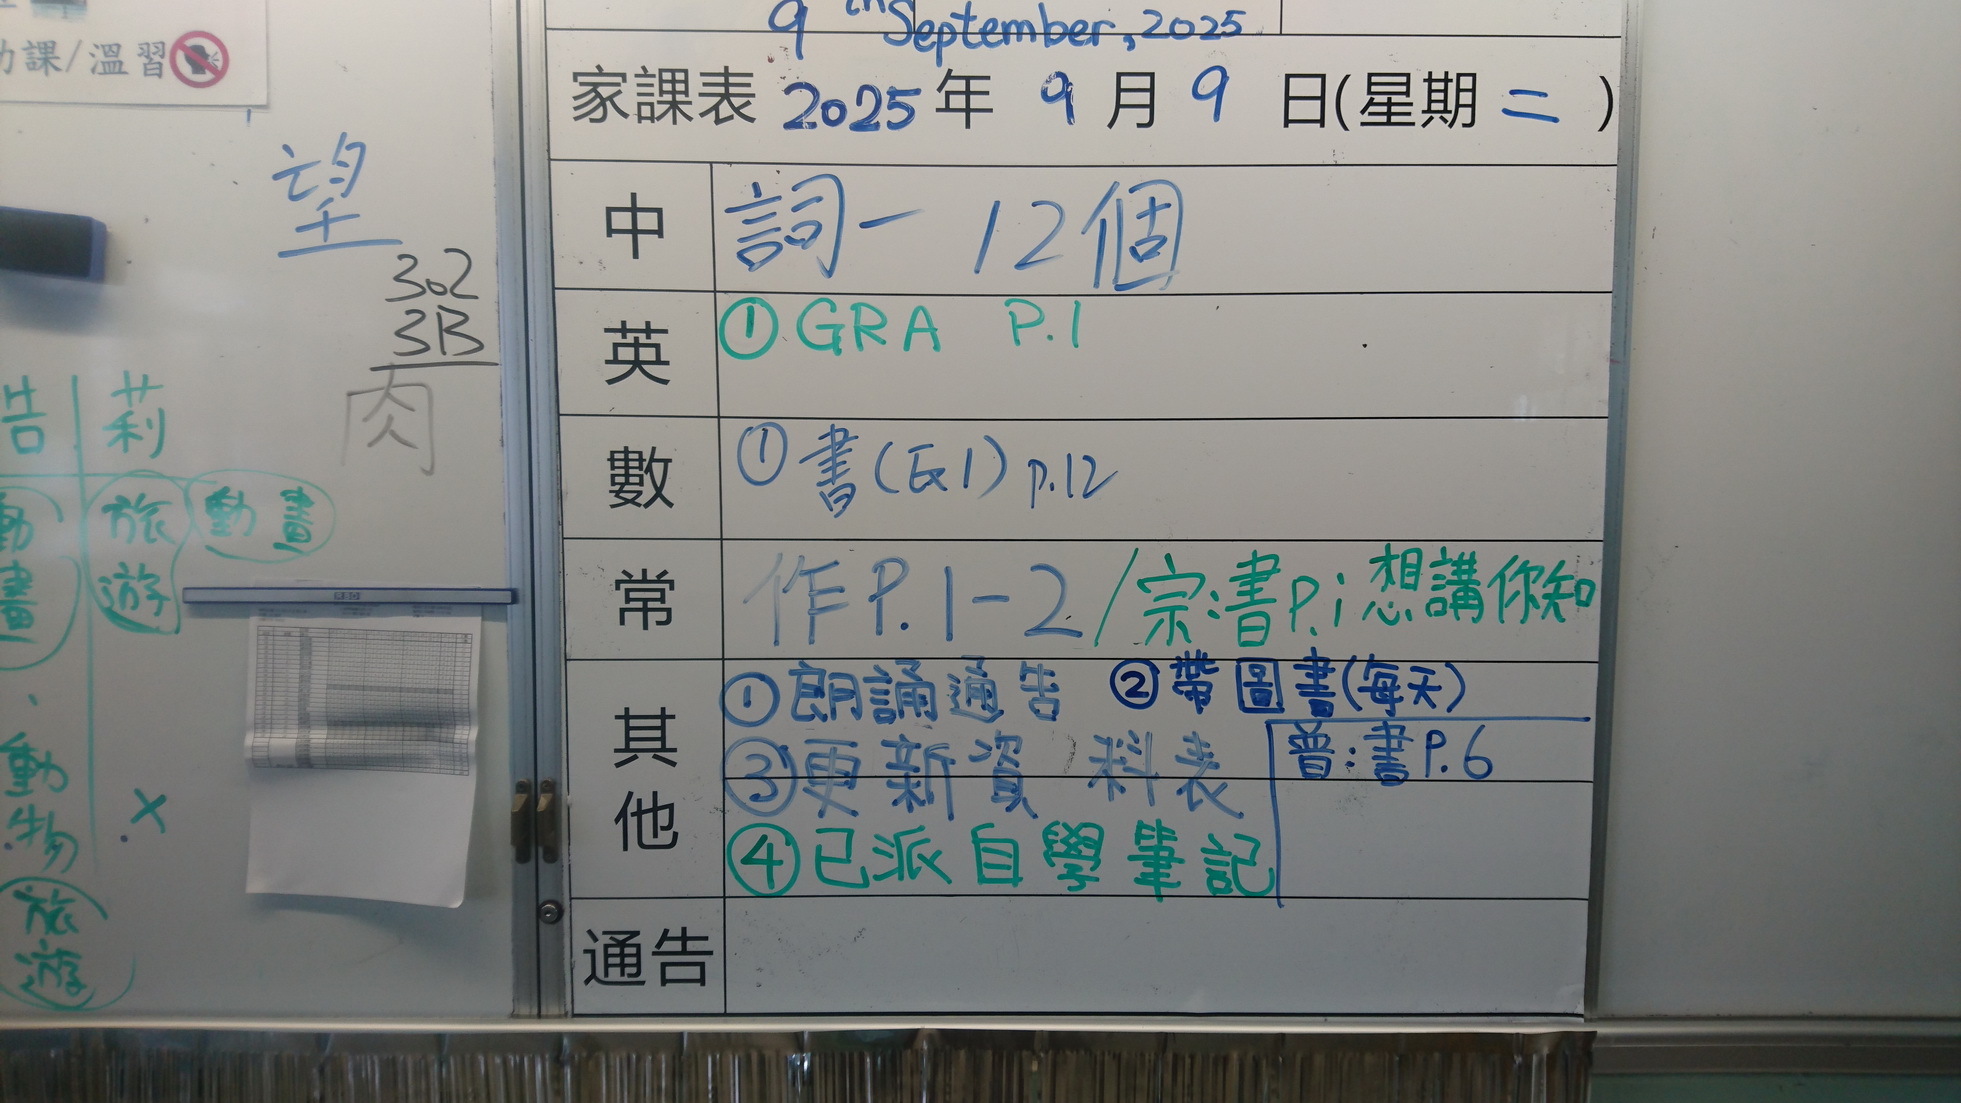 課/溫習
望
302
3B
肉
告 莉
動畫 旅遊 動畫
動物 x
旅遊
9th September, 2025
家課表 2025年 9月 9日(星期二)
中 詞一 12個
英 ① GRA P.1
數 ① 書(反1) p.12
常 作P.1-2/宗:書P.i 想講你知
其他 ①朗誦通告 ②帶圖書(每天)
③更新資料表 普:書P.6
④已派自學筆記
通告